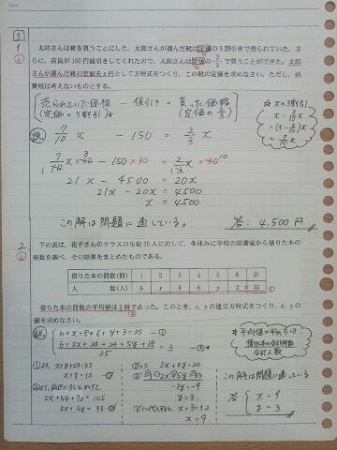 3
1
太郎さんは靴を買うことにした。太郎さんが選んだ靴は定価の3割引きで売られていた。さ
らに、店員が150円値引きしてくれたので、太郎さんは定価の2/3で買うことができた。太郎
さんが選んだ靴の定価をx円として方程式をつくり、この靴の定価を求めなさい。ただし、消
費税は考えないものとする。
売られていた価格 － 値引き = 買った価格
(定価の3割引) (定価の2/3)
7/10 x － 150 = 2/3 x
※ xの3割引
x－3/10 x
=(1－3/10)x
=7/10 x
7/10 x ×30 －150×30 = 2/3 x ×30
21x － 4500 = 20x
21x － 20x = 4500
x = 4500
この解は問題に適している。
答: 4,500円
2
下の表は、花子さんのクラスの生徒35人に対して、冬休みに学校の図書室から借りた本の
冊数を調べ、その結果をまとめたものである。
借りた本の冊数(冊) 1 2 3 4 5 6 計
人 数(人) 6 x 8 6 y 3 35
借りた本の冊数の平均値は3冊であった。このとき、x, yの連立方程式をつくり、x, yの
値を求めなさい。
6+x+8+6+y+3=35 －①
6+2x+24+24+5y+18
35
=3 －②
この解は問題に適している
答: x=9
y=3
x+y=12
2x+5y=33
-3y=-9
y=3
x=9